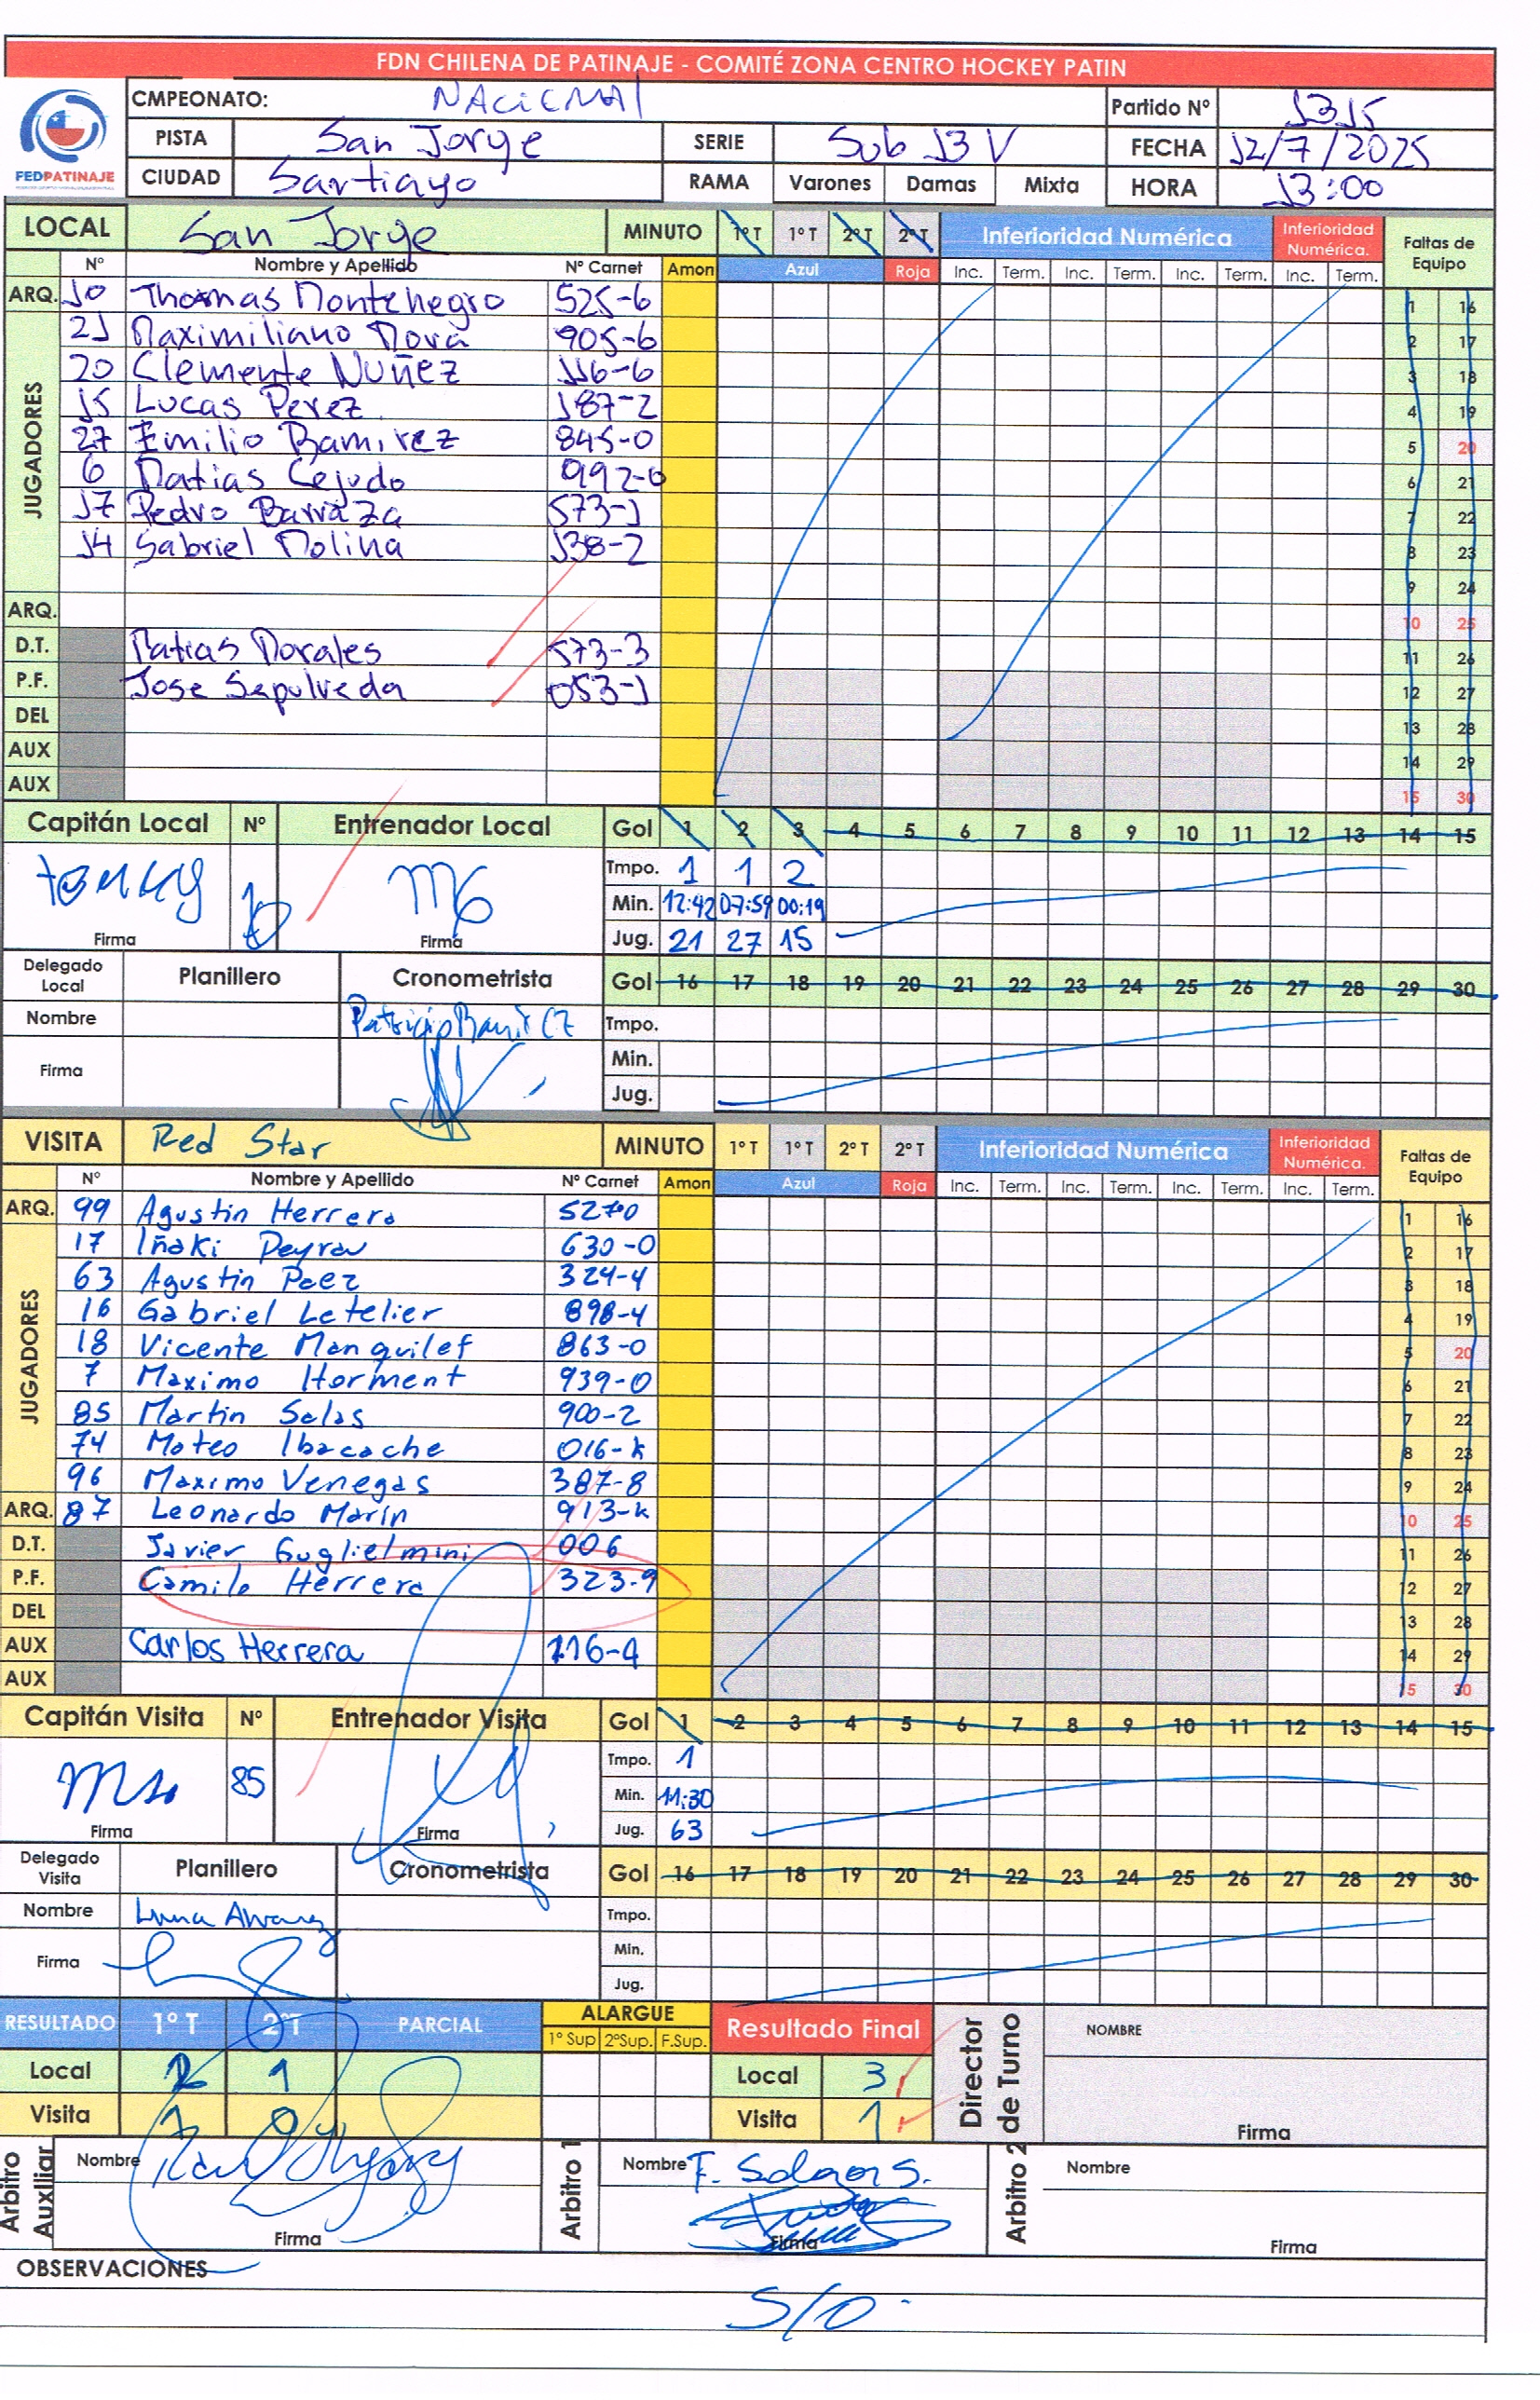 FDN CHILENA DE PATINAJE - COMITÉ ZONA CENTRO HOCKEY PATIN
FEDPATINAJE
CMPEONATO: NACIONAL Partido Nº 1315
PISTA San Jorge SERIE Sub 13 V FECHA 12/7/2025
CIUDAD Santiago RAMA Varones Damas Mixta HORA 13:00
LOCAL San Jorge MINUTO 1º T 1º T 2º T 2º T Inferioridad Numérica Inferioridad Numérica. Faltas de Equipo
Nº Nombre y Apellido Nº Carnet Amon Azul Roja Inc. Term. Inc. Term. Inc. Term. Inc. Term.
ARQ. 10 Thomas Montenegro 525-6 1 16
JUGADORES
21 Maximiliano Mora 905-6 2 17
20 Clemente Nuñez 116-6 3 18
15 Lucas Perez 187-2 4 19
27 Emilio Ramirez 845-0 5 20
6 Matias Cejudo 992-0 6 21
17 Pedro Barraza 573-1 7 22
14 Gabriel Molina 138-2 8 23
9 24
ARQ. 10 25
D.T. Matias Morales 573-3 11 26
P.F. Jose Sepulveda 053-1 12 27
DEL 13 28
AUX 14 29
AUX 15 30
Capitán Local Nº Entrenador Local Gol 1 2 3 4 5 6 7 8 9 10 11 12 13 14 15
Tmpo. 1 1 2
Min. 12:42 07:59 00:19
Firma 10 Firma Jug. 21 27 15
Delegado Local Planillero Cronometrista Gol 16 17 18 19 20 21 22 23 24 25 26 27 28 29 30
Nombre Patricio Ramirez Tmpo.
Min.
Firma Jug.
VISITA Red Star MINUTO 1º T 1º T 2º T 2º T Inferioridad Numérica Inferioridad Numérica. Faltas de Equipo
Nº Nombre y Apellido Nº Carnet Amon Azul Roja Inc. Term. Inc. Term. Inc. Term. Inc. Term.
ARQ. 99 Agustin Herrera 527-0 1 16
JUGADORES
17 Iñaki Peyrav 630-0 2 17
63 Agustin Paez 324-4 3 18
16 Gabriel Letelier 898-4 4 19
18 Vicente Manquilef 863-0 5 20
7 Maximo Horment 939-0 6 21
85 Martin Salas 900-2 7 22
74 Mateo Ibacache 016-k 8 23
96 Maximo Venegas 387-8 9 24
ARQ. 87 Leonardo Marín 913-k 10 25
D.T. Javier Guglielmini 006 11 26
P.F. Camilo Herrera 323-9 12 27
DEL 13 28
AUX Carlos Herrera 116-4 14 29
AUX 15 30
Capitán Visita Nº Entrenador Visita Gol 1 2 3 4 5 6 7 8 9 10 11 12 13 14 15
Tmpo. 1
85 Min. 11:30
Firma Firma Jug. 63
Delegado Visita Planillero Cronometrista Gol 16 17 18 19 20 21 22 23 24 25 26 27 28 29 30
Nombre Tmpo.
Min.
Firma Jug.
RESULTADO 1º T 2º T PARCIAL ALARGUE Resultado Final Director de Turno NOMBRE
1º Sup 2ºSup. F.Sup.
Local 2 1 Local 3
Visita 1 0 Visita 1 Firma
Arbitro Auxiliar Nombre Arbitro 1 Nombre Arbitro 2 Nombre
Firma Firma Firma
OBSERVACIONES
S/O.